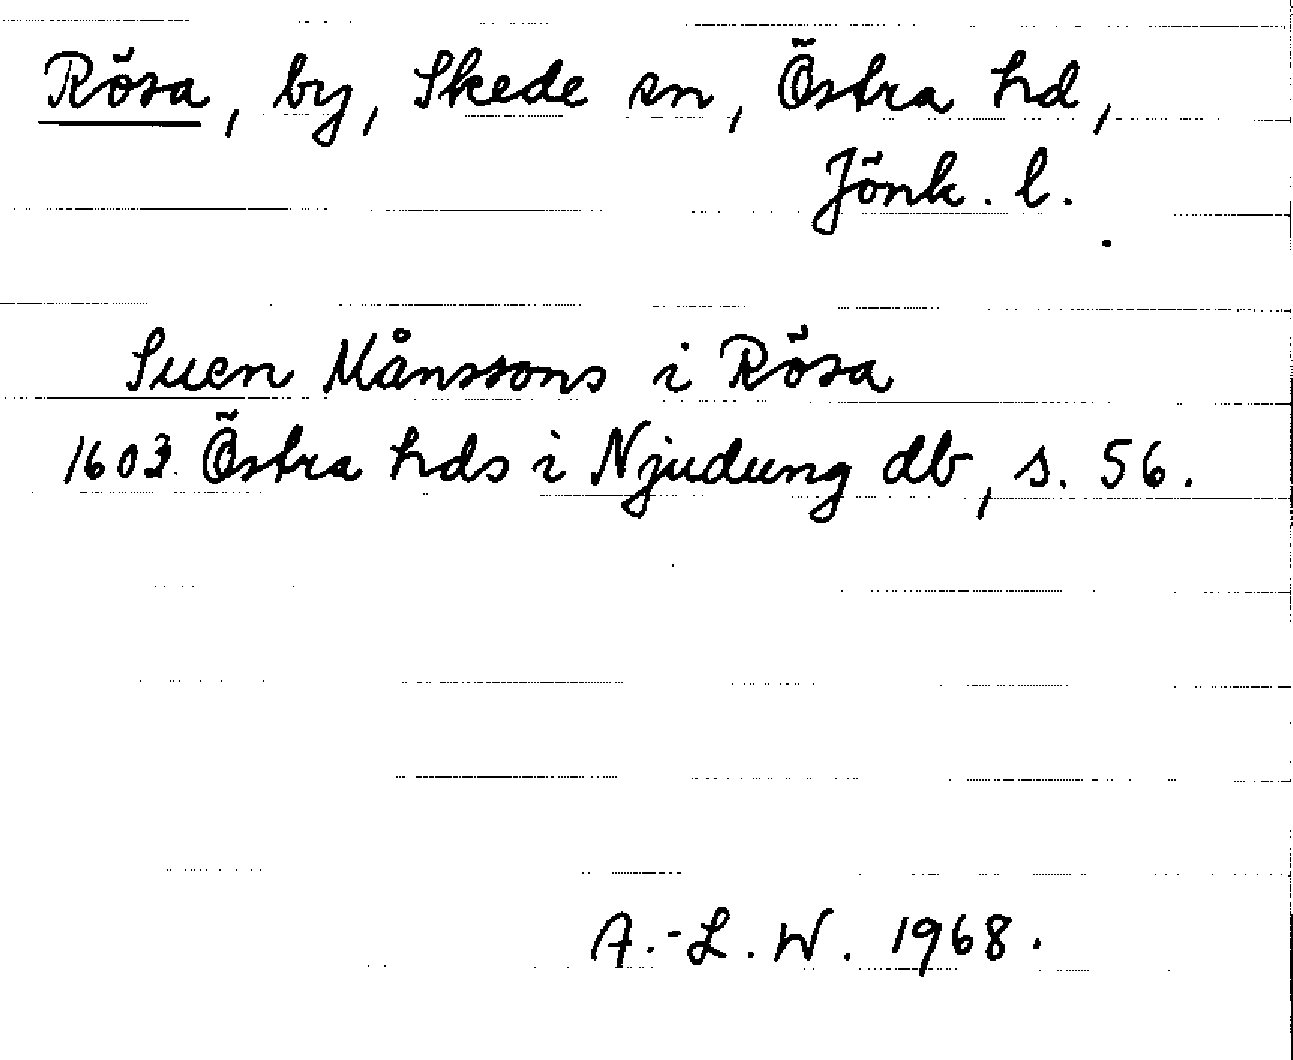 Rösa, by, Skede sn, Östra hd,
Jönk. l.
Suen Månssons i Rösa
1603 Östra hds i Njudung db, s. 56.
A.-L. W. 1968.